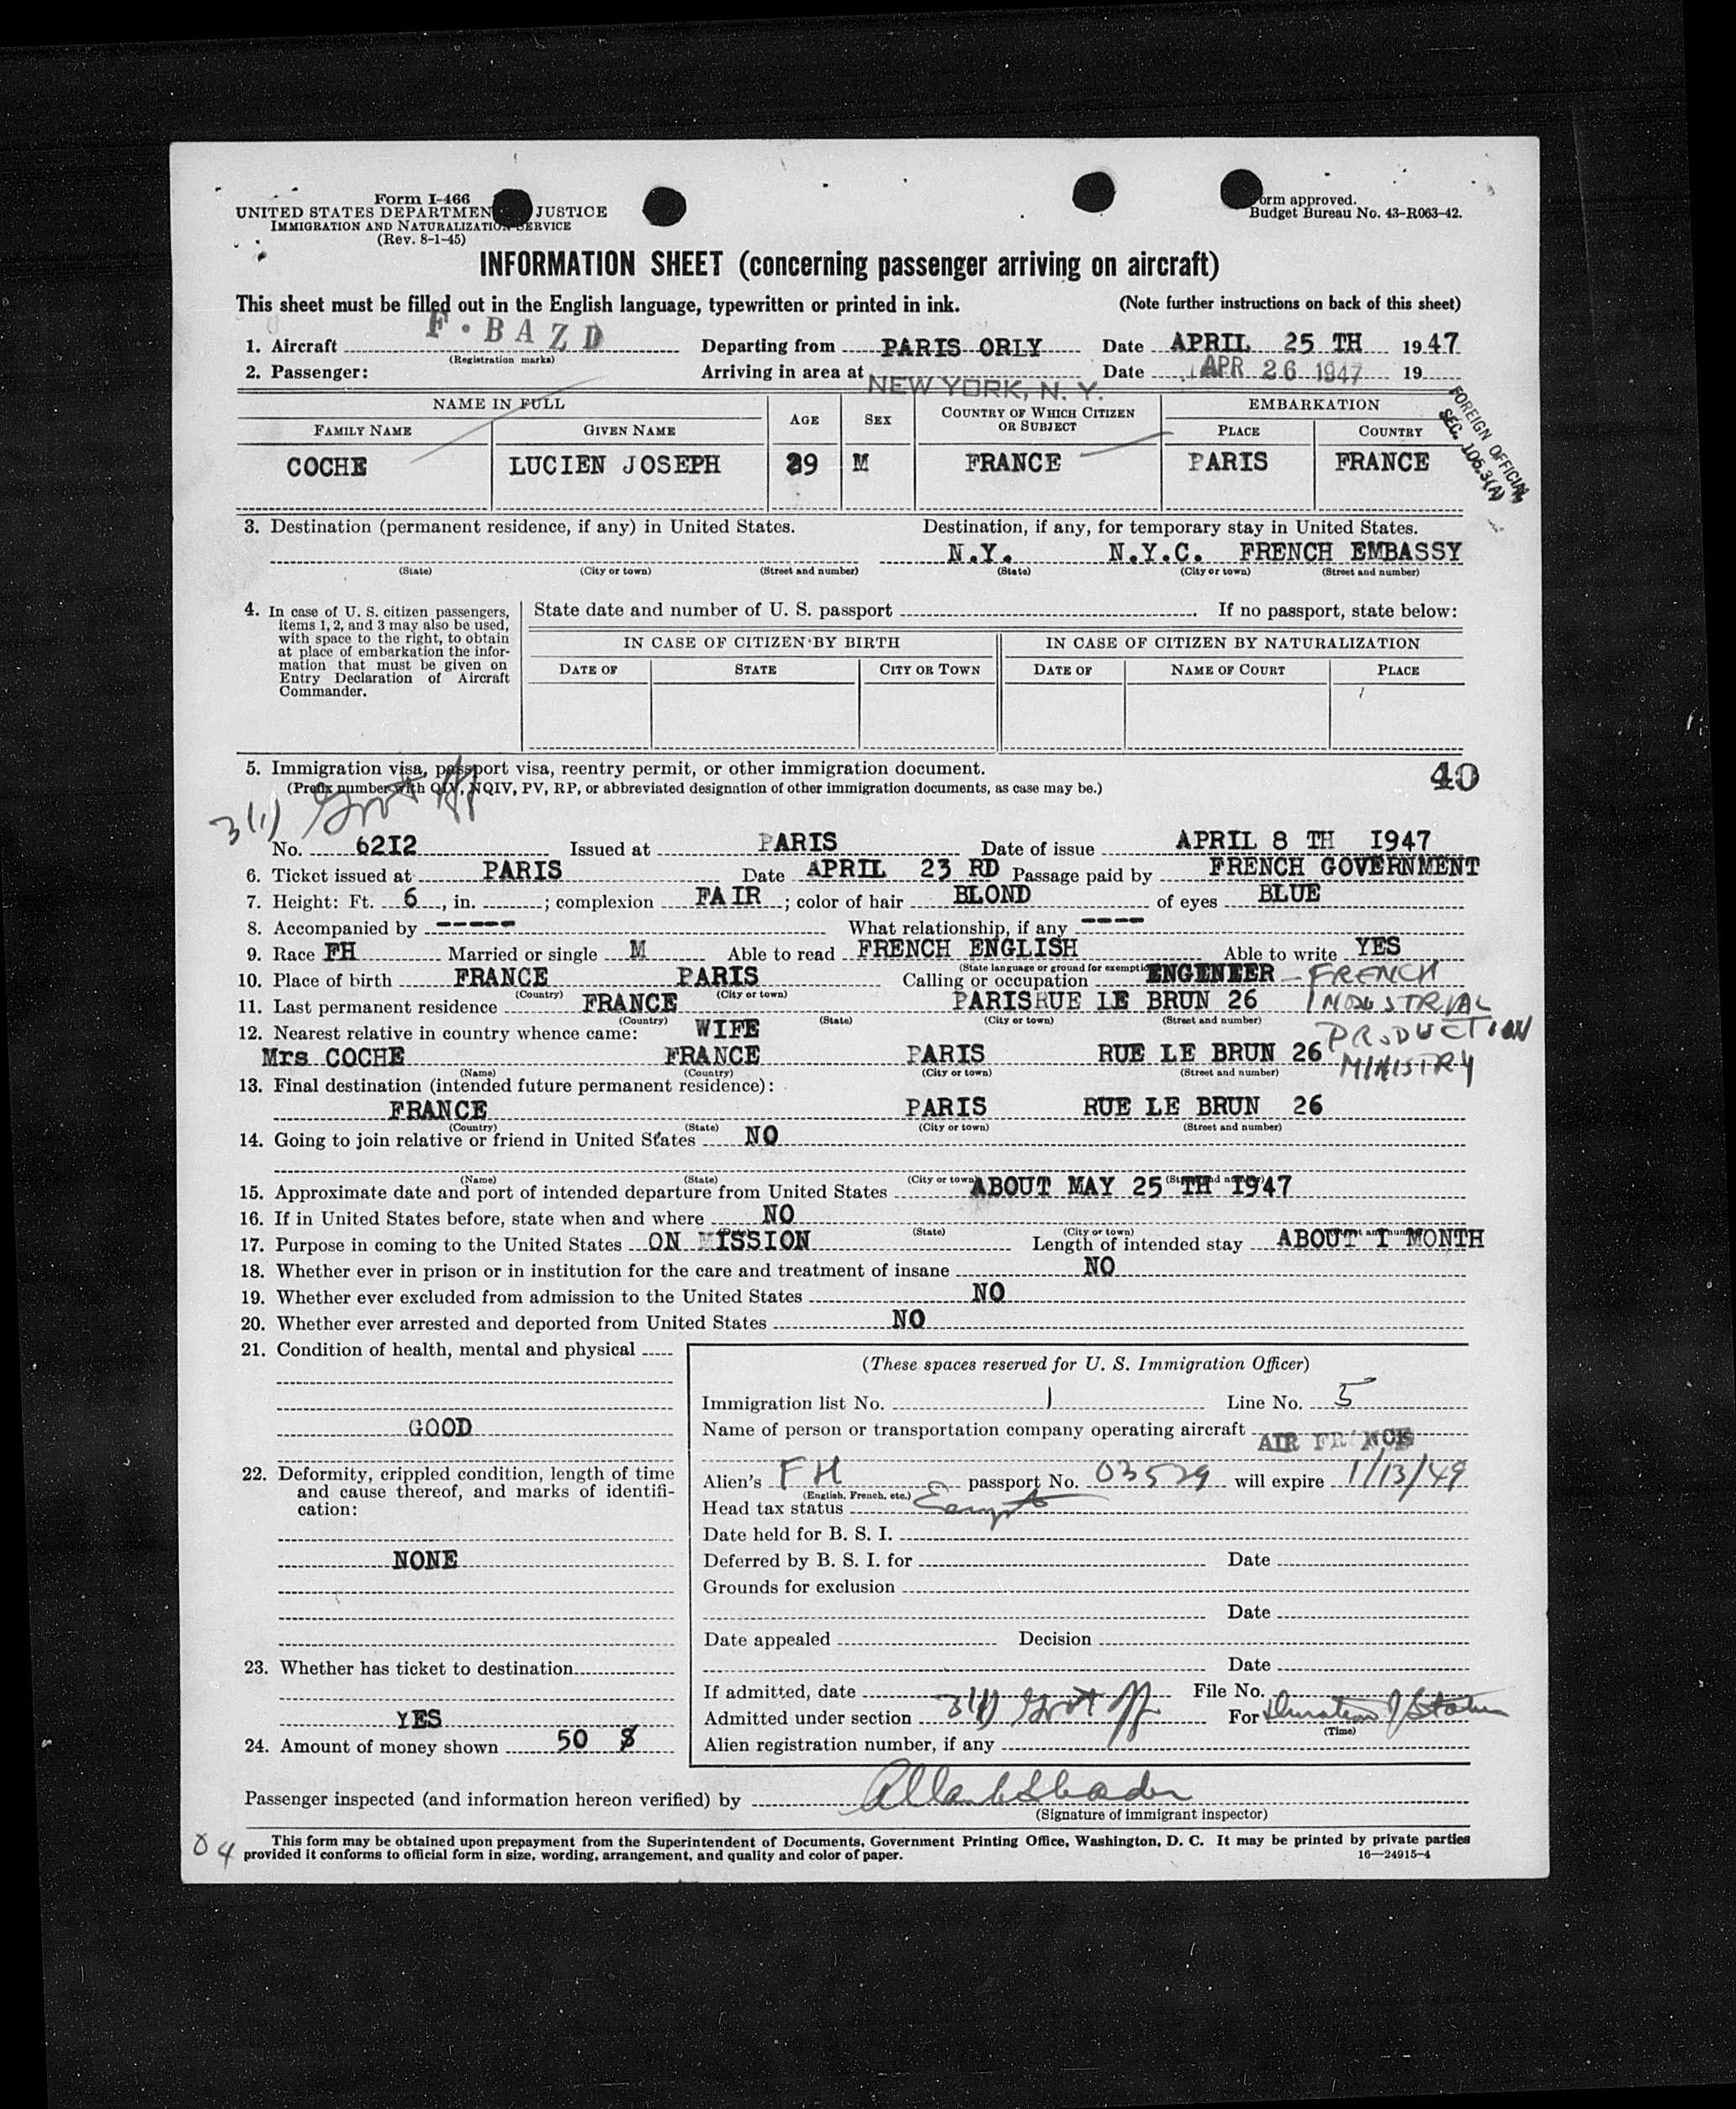 Form I-466
UNITED STATES DEPARTMENT JUSTICE
IMMIGRATION AND NATURALIZATION SERVICE
(Rev. 8-1-45)
Form approved.
Budget Bureau No. 43-R063-42.
INFORMATION SHEET (concerning passenger arriving on aircraft)
This sheet must be filled out in the English language, typewritten or printed in ink. (Note further instructions on back of this sheet)
1. Aircraft F·BAZD Departing from PARIS ORLY Date APRIL 25 TH 1947
(Registration marks)
2. Passenger: Arriving in area at NEW YORK, N. Y. Date APR 26 1947 19
FOREIGN OFFICIAL
SEC. 106.3(A)
NAME IN FULL AGE SEX COUNTRY OF WHICH CITIZEN OR SUBJECT EMBARKATION
FAMILY NAME GIVEN NAME PLACE COUNTRY
COCHE LUCIEN JOSEPH 39 M FRANCE PARIS FRANCE
3. Destination (permanent residence, if any) in United States. Destination, if any, for temporary stay in United States.
N.Y. N.Y.C. FRENCH EMBASSY
(State) (City or town) (Street and number) (State) (City or town) (Street and number)
4. In case of U. S. citizen passengers, items 1, 2, and 3 may also be used, with space to the right, to obtain at place of embarkation the information that must be given on Entry Declaration of Aircraft Commander.
State date and number of U. S. passport If no passport, state below:
IN CASE OF CITIZEN BY BIRTH IN CASE OF CITIZEN BY NATURALIZATION
DATE OF STATE CITY OR TOWN DATE OF NAME OF COURT PLACE
5. Immigration visa, passport visa, reentry permit, or other immigration document. 40
(Prefix number with QIV, NQIV, PV, RP, or abbreviated designation of other immigration documents, as case may be.)
3(1) Govt Off
No. 62I2 Issued at PARIS Date of issue APRIL 8 TH I947
6. Ticket issued at PARIS Date APRIL 23 RD Passage paid by FRENCH GOVERNMENT
7. Height: Ft. 6, in. ; complexion FAIR ; color of hair BLOND of eyes BLUE
8. Accompanied by ----- What relationship, if any ----
9. Race FH Married or single M Able to read FRENCH ENGLISH Able to write YES
(State language or ground for exemption)
10. Place of birth FRANCE PARIS Calling or occupation ENGENEER - FRENCH
(Country) (City or town)
11. Last permanent residence FRANCE PARIS RUE LE BRUN 26 INDUSTRIAL
(Country) (State) (City or town) (Street and number)
12. Nearest relative in country whence came: WIFE PRODUCTION
Mrs COCHE FRANCE PARIS RUE LE BRUN 26 MINISTRY
(Name) (Country) (City or town) (Street and number)
13. Final destination (intended future permanent residence):
FRANCE PARIS RUE LE BRUN 26
(Country) (State) (City or town) (Street and number)
14. Going to join relative or friend in United States NO
(Name) (State) (City or town) (Street and number)
15. Approximate date and port of intended departure from United States ABOUT MAY 25 TH I947
16. If in United States before, state when and where NO
(Date) (State) (City or town) (Street and number)
17. Purpose in coming to the United States ON MISSION Length of intended stay ABOUT I MONTH
18. Whether ever in prison or in institution for the care and treatment of insane NO
19. Whether ever excluded from admission to the United States NO
20. Whether ever arrested and deported from United States NO
21. Condition of health, mental and physical
GOOD
22. Deformity, crippled condition, length of time and cause thereof, and marks of identification:
NONE
23. Whether has ticket to destination
YES
24. Amount of money shown 50 $
(These spaces reserved for U. S. Immigration Officer)
Immigration list No. 1 Line No. 5
Name of person or transportation company operating aircraft AIR FRANCE
Alien's FH passport No. 03529 will expire 1/13/49
(English, French, etc.)
Head tax status Exempt
Date held for B. S. I.
Deferred by B. S. I. for Date
Grounds for exclusion
Date
Date appealed Decision
Date
If admitted, date File No.
Admitted under section 3(1) Govt Off For Duration of Status
(Time)
Alien registration number, if any
Passenger inspected (and information hereon verified) by
(Signature of immigrant inspector)
04
This form may be obtained upon prepayment from the Superintendent of Documents, Government Printing Office, Washington, D. C. It may be printed by private parties
provided it conforms to official form in size, wording, arrangement, and quality and color of paper. 16—24915-4